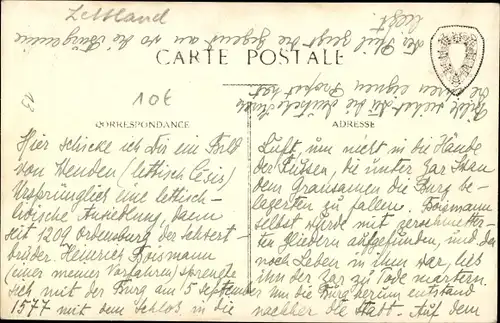 Lettland
CARTE POSTALE
10€
CORRESPONDANCE
ADRESSE
Hier schicke ich Dir ein Bild
von Wenden (lettisch Cēsis)
Ursprünglich eine lettisch-
livische Ansiedlung, dann
seit 1209 Ordensburg der Schwert-
brüder. Heinrich Boismann
(einer meiner Vorfahren) sprengte
sich mit der Burg am 5 September
1577 mit dem Schloß, in die
Luft, um nicht in die Hände
der Russen, die unter Zar Iwan
dem Grausamen die Burg be-
lagerten zu fallen. Boismann
selbst wurde mit zerschmetter-
ten Gliedern aufgefunden, und da
noch Leben in ihm war, ließ
ihn der Zar zu Tode martern.
Um die Burg herum entstand
nachher die Stadt. Auf dem
die ihren eignen Propst hat.
Der Pfeil zeigt die Gegend an wo die Burgruine
liegt.